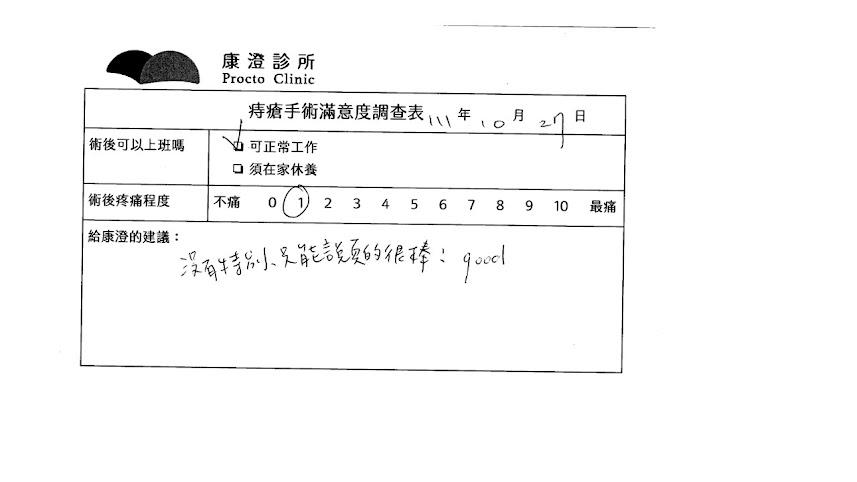 康澄診所
Procto Clinic
痔瘡手術滿意度調查表 111 年 10 月 27 日
術後可以上班嗎
可正常工作
須在家休養
術後疼痛程度 不痛 0 1 2 3 4 5 6 7 8 9 10 最痛
給康澄的建議：
沒有特別、只能說真的很棒：good